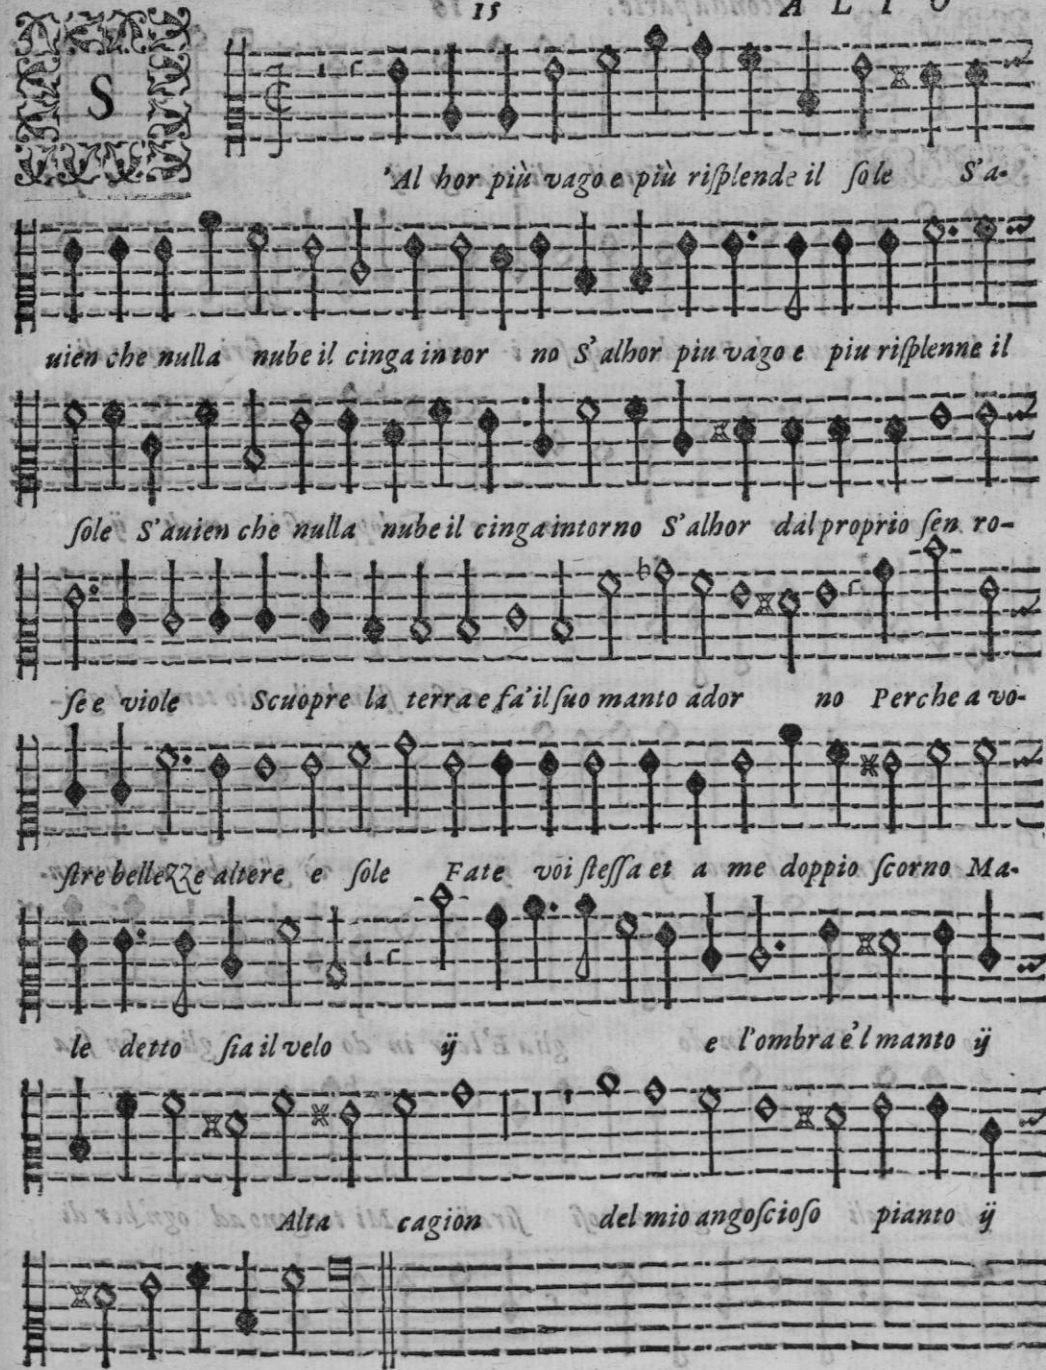 15 ALTO
S
'Al hor più vago e più riſplende il ſole S'a-
uien che nulla nube il cinga intor no S'alhor piu vago e piu riſplenne il
ſole S'auien che nulla nube il cinga intorno S'alhor dal proprio ſen ro-
ſe e viole Scuopre la terra e fa'il ſuo manto ador no Perche a vo-
ſtre bellezze altere e ſole Fate voi ſteſſa et a me doppio ſcorno Ma-
le detto ſia il velo ij e l'ombra e'l manto ij
Alta cagion del mio angoſcioſo pianto ij